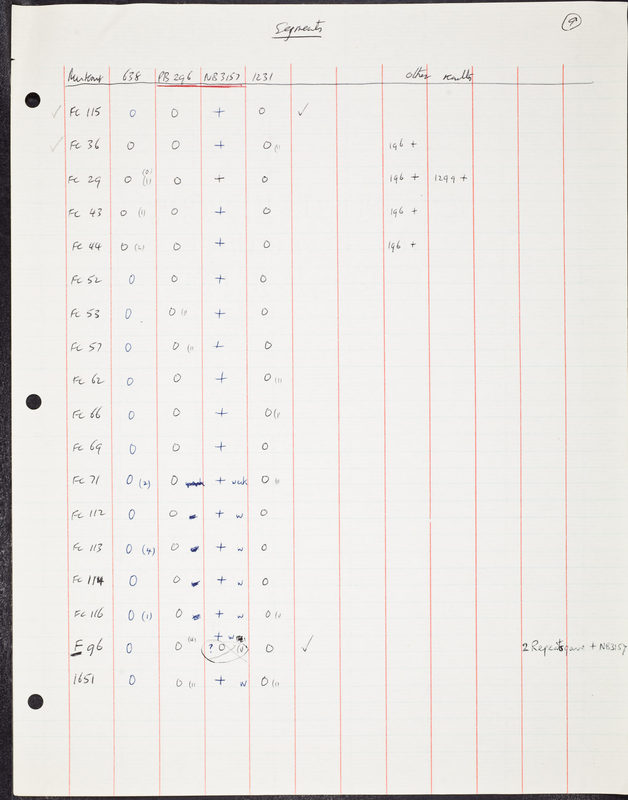 Segments
9
Mutant 638 PB 296 NB3157 1231 other results
✓ FC 115 0 0 + 0 ✓
✓ FC 36 0 0 + 0 (1) 196 +
FC 29 0 (0) (1) 0 + 0 196 + 1299 +
FC 43 0 (1) 0 + 0 196 +
FC 44 0 (2) 0 + 0 196 +
FC 52 0 0 + 0
FC 53 0 0 (1) + 0
FC 57 0 0 (1) + 0
FC 62 0 0 + 0 (1)
FC 66 0 0 + 0 (1)
FC 69 0 0 + 0
FC 71 0 (2) 0 + weak 0 (1)
FC 112 0 0 + w 0
FC 113 0 (4) 0 + w 0
FC 114 0 0 + w 0
FC 116 0 (1) 0 + w 0 (1)
+ w
E 96 0 0 ? 0 (1) 0 ✓ 2 Repeats gave + NB3157
1651 0 0 (1) + w 0 (1)